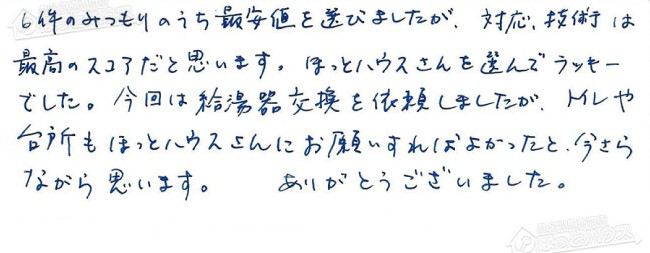 6件のみつもりのうち最安値を選びましたが、対応、技術は
最高のスコアだと思います。ほっとハウスさんを選んでラッキー
でした。今回は給湯器交換を依頼しましたが、トイレや
台所もほっとハウスさんにお願いすればよかったと、今さら
ながら思います。　ありがとうございました。
ほっとハウス